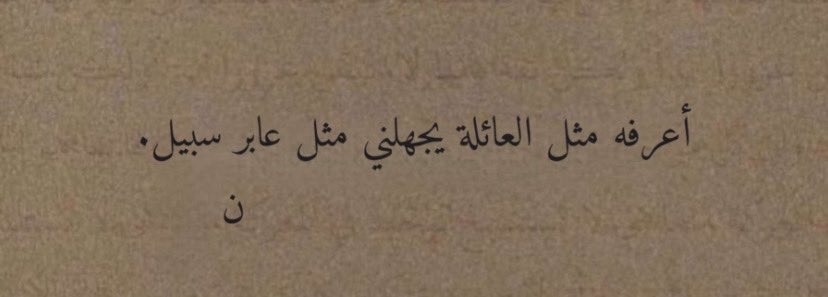 أعرفه مثل العائلة يجهلني مثل عابر سبيل.
ن